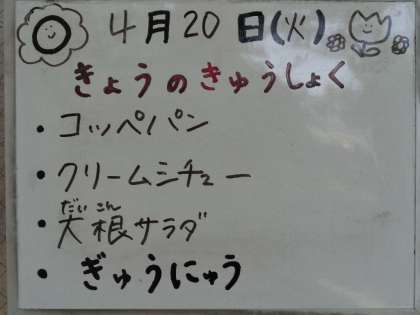 4月20日(火)
きょうのきゅうしょく
・コッペパン
・クリームシチュー
だいこん
・大根サラダ
・ぎゅうにゅう